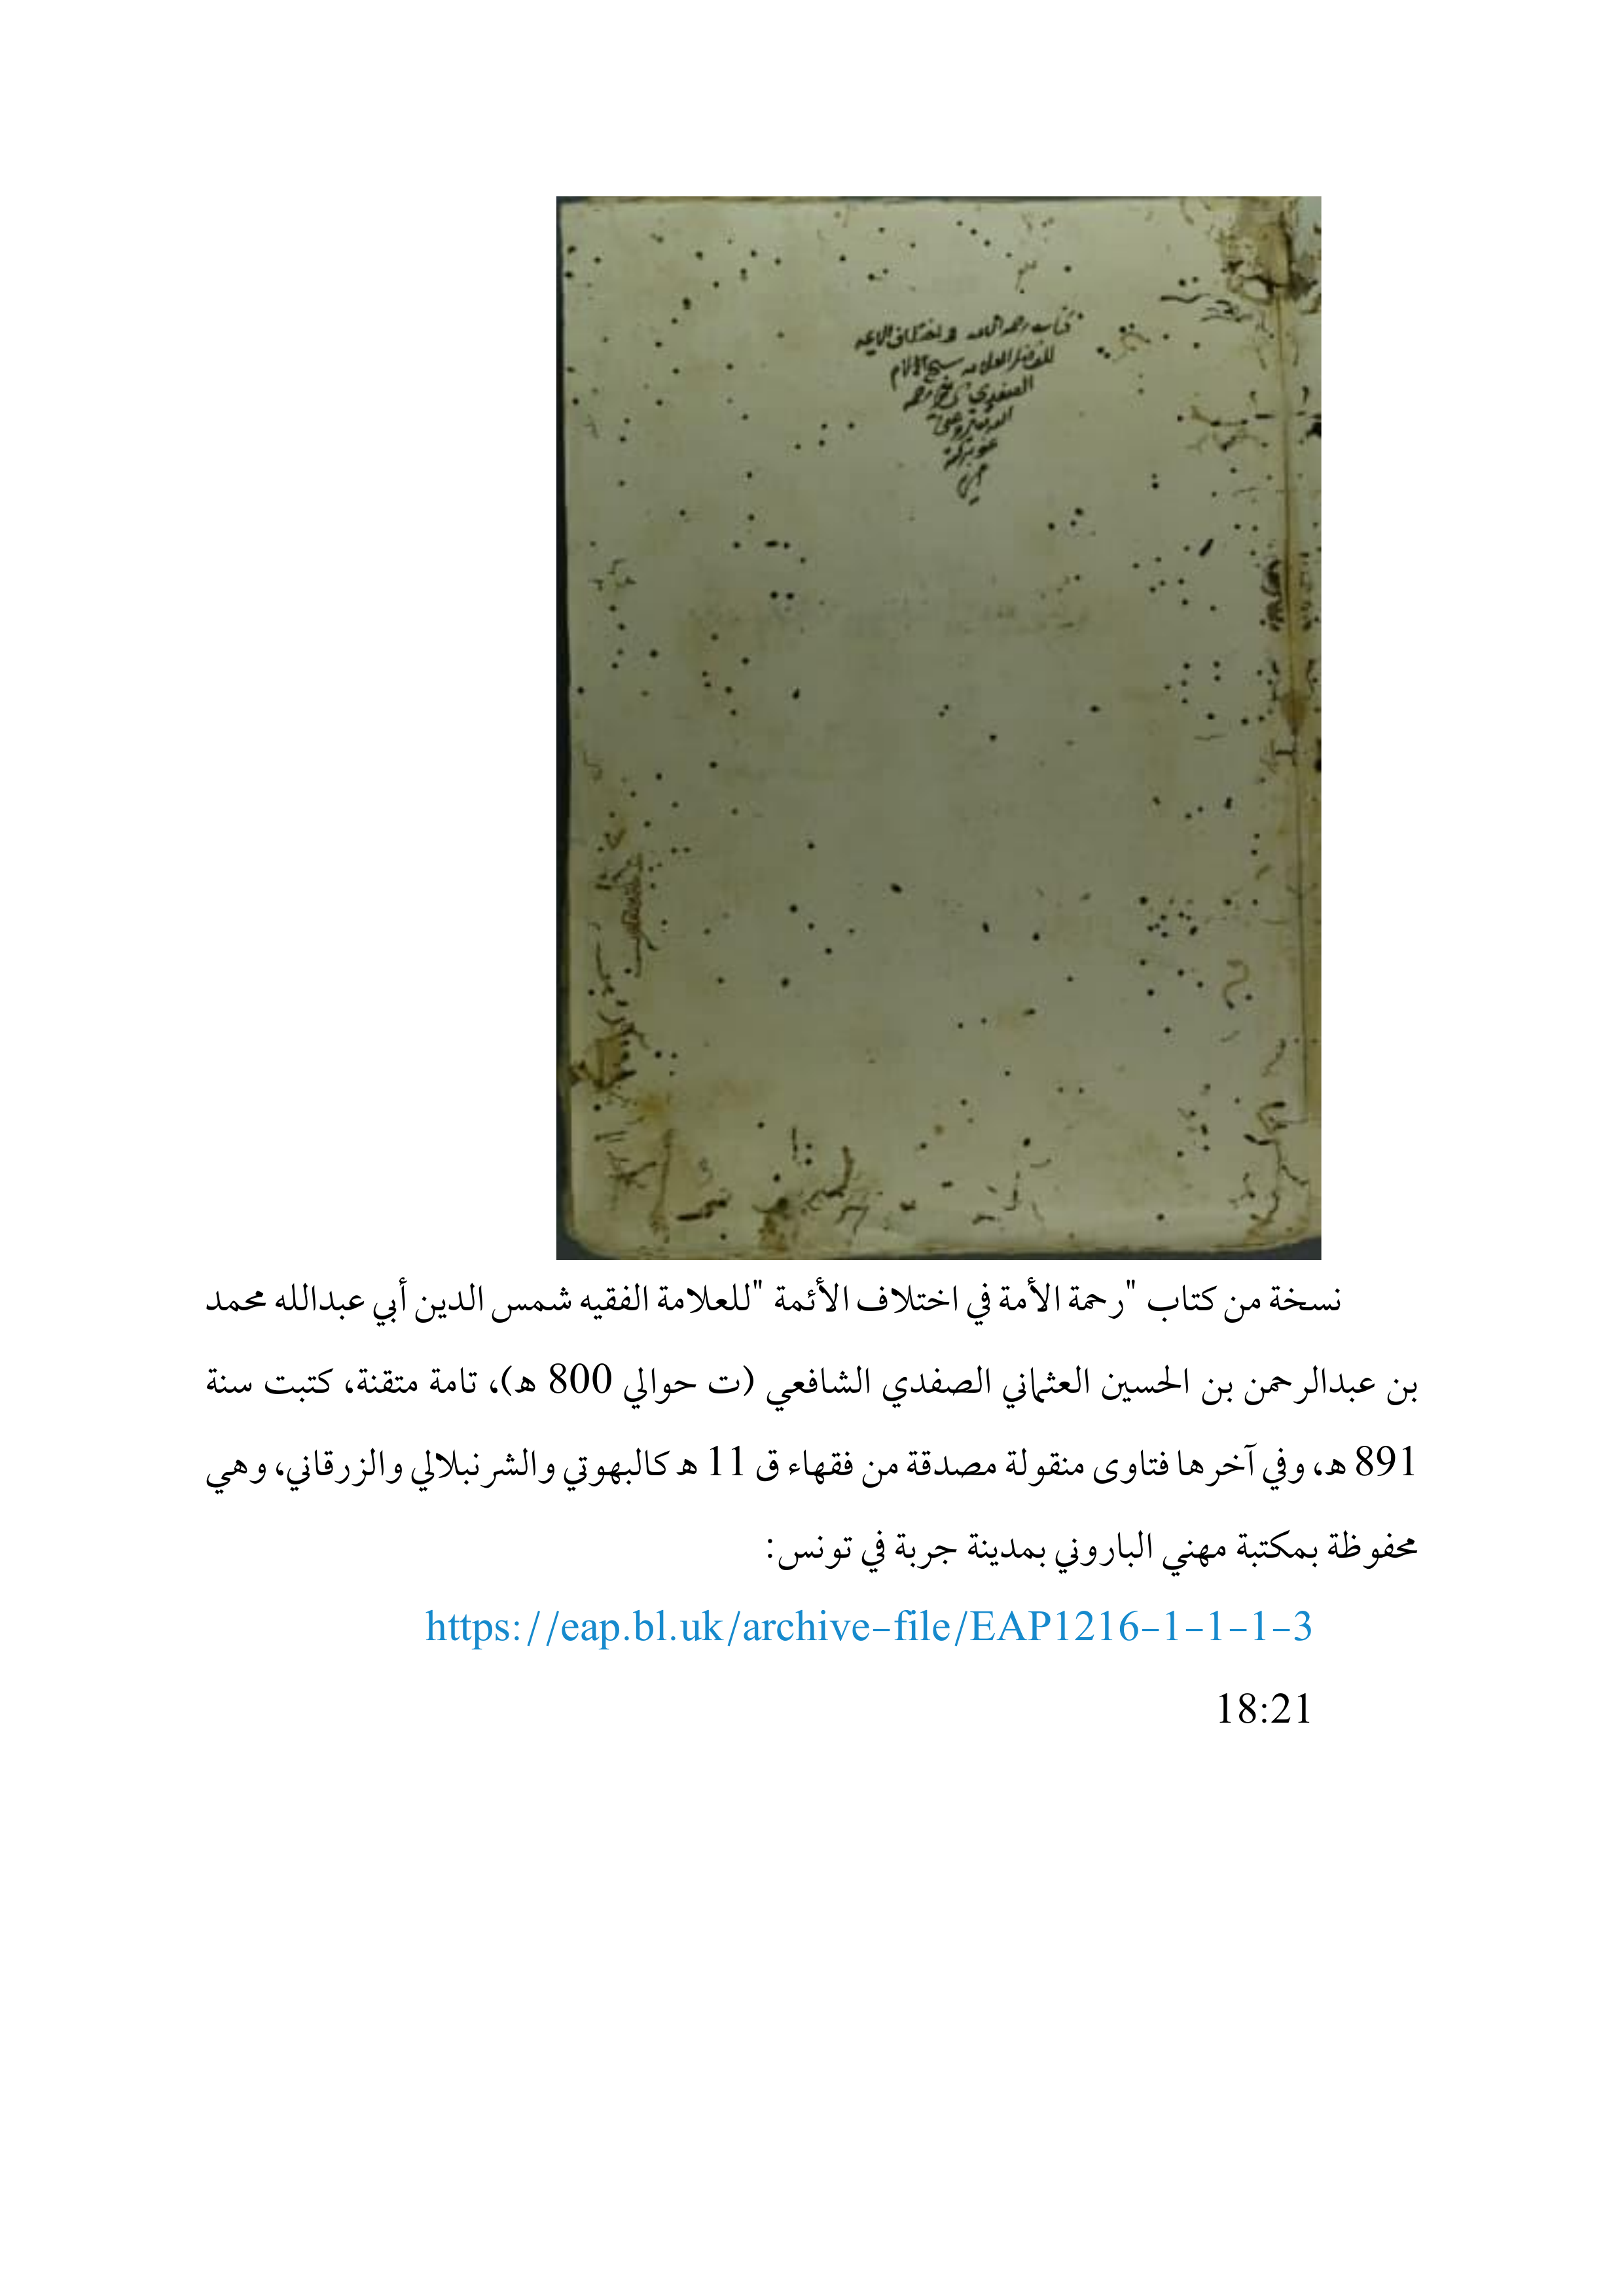 كتاب رحمه الامه في اختلاف الايمه
للفاضل العلامه شيخ الاسلام
الصفدي
نسخة من كتاب "رحمة الأمة في اختلاف الأئمة "للعلامة الفقيه شمس الدين أبي عبدالله محمد
بن عبدالرحمن بن الحسين العثماني الصفدي الشافعي (ت حوالي 800 هـ)، تامة متقنة، كتبت سنة
891 هـ، وفي آخرها فتاوى منقولة مصدقة من فقهاء ق 11 هـ كالبهوتي والشرنبلالي والزرقاني، وهي
محفوظة بمكتبة مهني الباروني بمدينة جربة في تونس:
https://eap.bl.uk/archive-file/EAP1216-1-1-1-3
18:21